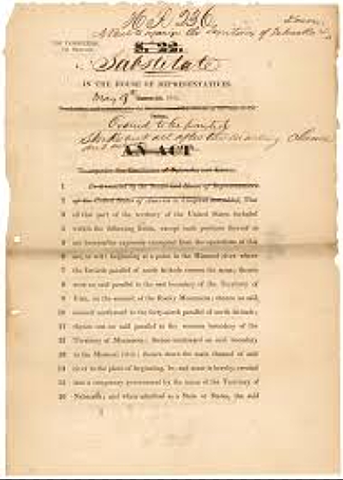 H. R. 236
A Bill to organize the Territory of Nebraska
S. 22.
Substitute
IN THE HOUSE OF REPRESENTATIVES.
May
Ordered to be printed
Strike out all after the enacting clause
AN ACT
1 Be it enacted by the Senate and House of Representatives
2 of the United States of America in Congress assembled, That
3 all that part of the territory of the United States included
4 within the following limits, except such portions thereof as
5 are hereinafter expressly exempted from the operations of this
6 act, to wit: beginning at a point in the Missouri river where
7 the fortieth parallel of north latitude crosses the same; thence
8 west on said parallel to the east boundary of the Territory of
9 Utah, on the summit of the Rocky Mountains; thence on said
10 summit northward to the forty-ninth parallel of north latitude;
11 thence east on said parallel to the western boundary of the
12 Territory of Minnesota; thence southward on said boundary
13 to the Missouri river; thence down the main channel of said
14 river to the place of beginning, be, and same is hereby, created
15 into a temporary government by the name of the Territory of
16 Nebraska; and when admitted as a State or States, the said